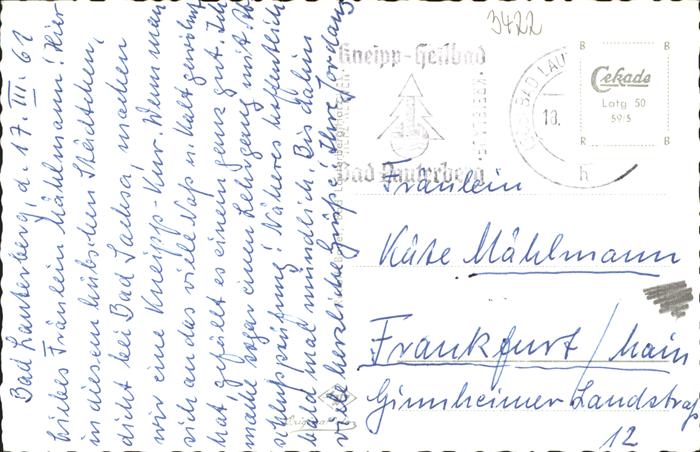 Bad Lauterberg, d. 17. III. 61
Liebes Fräulein Mählmann! Hier
in diesem hübschen Städtchen,
dicht bei Bad Sachsa, machen
wir eine Kneipp-Kur. Wenn man
sich an das viele Naß u. Kalt gewöhnt
hat, gefällt es einem ganz gut. Ich
mache sogar einen Lehrgang mit Ab-
schlußprüfung! Näheres hoffentlich
bald mal mündlich. Bis dahin
viele herzliche Grüße! Ihre
3422
Kneipp-Heilbad
Bad Lauterberg
BAD LAU
18.
h
B B
Cekade
Latg 50
59/5
R R
Fräulein
Käte Mählmann
Frankfurt/Main
Ginnheimer Landstraß
12
Original